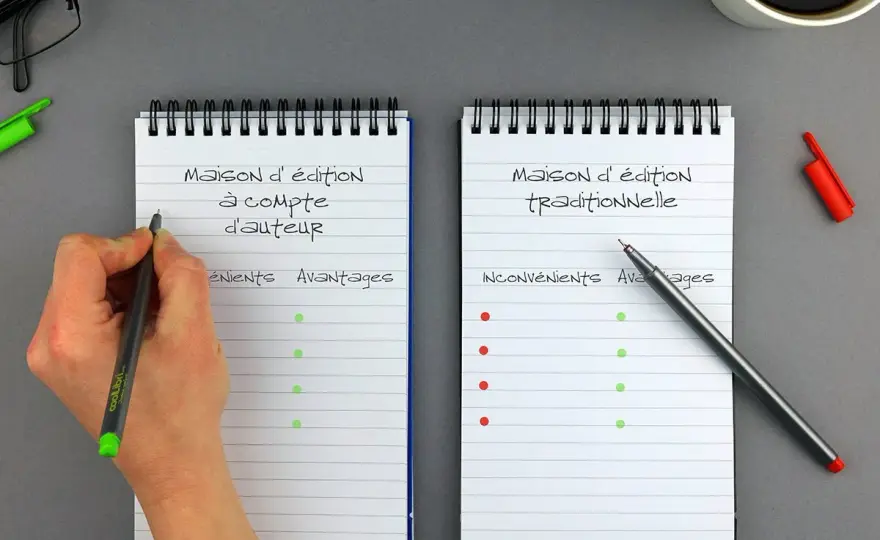 Maison d'édition
à compte
d'auteur
énients Avantages
coolLibri
Maison d'édition
traditionnelle
Inconvénients Av ages